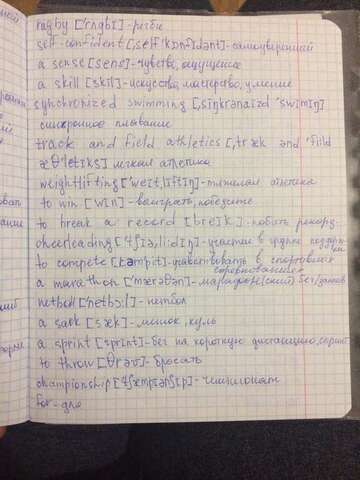 rugby ['rʌgbɪ] - регби
self-confident [,self'kɒnfɪdənt] - самоуверенный
a sense [sens] - чувство, ощущение
a skill [skil] - искусство, мастерство, умение
synchronized swimming [,sɪŋkrənaɪzd 'swɪmɪŋ]
синхронное плавание
track and field athletics [,træk ənd 'fiːld
æθ'letɪks] лёгкая атлетика
weightlifting ['weɪt,lɪftɪŋ] - тяжелая атлетика
to win ['wɪn] - выиграть, победить
to break a record [breɪk] - побить рекорд
cheerleading ['tʃɪə,liːdɪŋ] - участие в группе поддержки
to compete [kəmpiːt] - участвовать в спортивных
соревнованиях
a marathon ['mærəθən] - марафон(ский) бег/заплыв
netball ['netbɔːl] - нетбол
a sack [sæk] - мешок, куль
a sprint [sprɪnt] - бег на короткую дистанцию, спринт
to throw [θrəʊ] - бросать
championship ['tʃæmpɪənʃɪp] - чемпионат
for - для